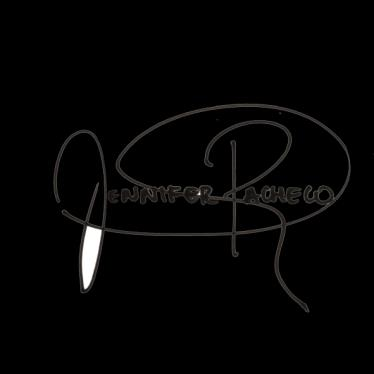 JENNIFER PACHECO